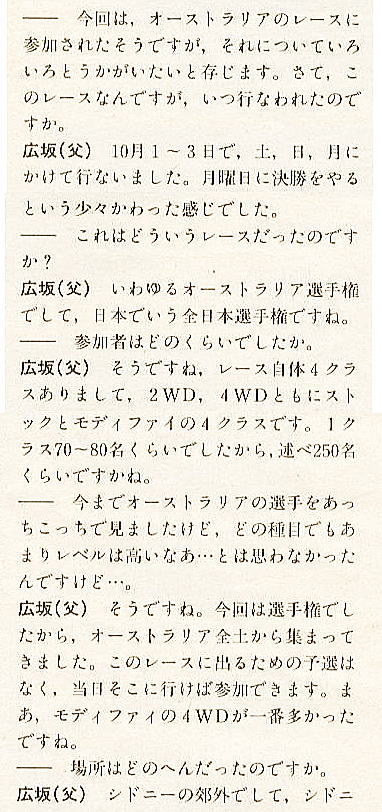 ―― 今回は，オーストラリアのレースに
参加されたそうですが，それについていろ
いろとうかがいたいと存じます。さて，こ
のレースなんですが，いつ行なわれたので
すか。
広坂(父) 10月1～3日で，土，日，月に
かけて行ないました。月曜日に決勝をやる
という少々かわった感じでした。
―― これはどういうレースだったのです
か？
広坂(父) いわゆるオーストラリア選手権
でして，日本でいう全日本選手権ですね。
―― 参加者はどのくらいでしたか。
広坂(父) そうですね，レース自体4クラ
スありまして，2WD，4WDともにスト
ックとモディファイの4クラスです。1ク
ラス70～80名くらいでしたから，述べ250名
くらいですかね。
―― 今までオーストラリアの選手をあっ
ちこっちで見ましたけど，どの種目でもあ
まりレベルは高いなあ…とは思わなかった
んですけど…。
広坂(父) そうですね。今回は選手権でし
たから，オーストラリア全土から集まって
きました。このレースに出るための予選は
なく，当日そこに行けば参加できます。ま
あ，モディファイの4WDが一番多かった
ですね。
―― 場所はどのへんだったのですか。
広坂(父) シドニーの郊外でして，シドニ